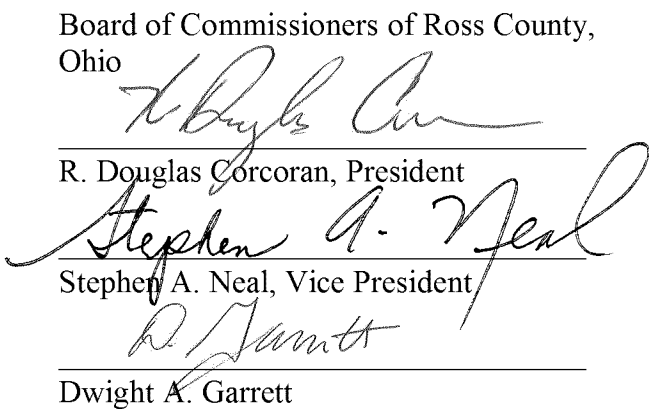 Board of Commissioners of Ross County,
Ohio
R. Douglas C
R. Douglas Corcoran, President
Stephen A. Neal
Stephen A. Neal, Vice President
D. Garrett
Dwight A. Garrett